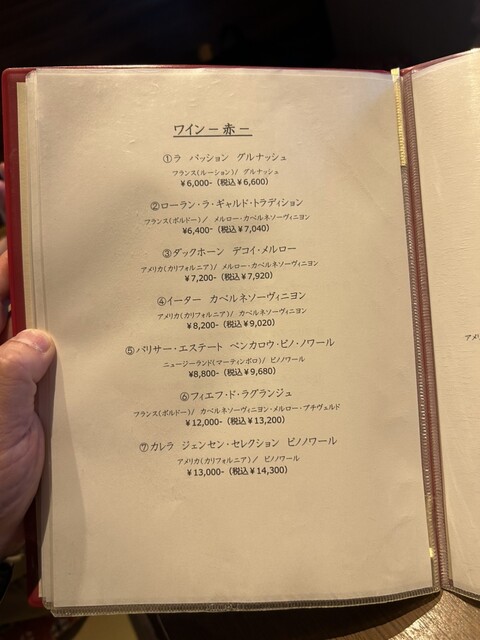 ワイン－赤－
①ラ パッション グルナッシュ
フランス(ルーション)/ グルナッシュ
¥6,000-（税込¥6,600）
②ローラン・ラ・ギャルド・トラディション
フランス(ボルドー)/ メルロー・カベルネソーヴィニヨン
¥6,400-（税込¥7,040）
③ダックホーン デコイ・メルロー
アメリカ(カリフォルニア)/ メルロー・カベルネソーヴィニヨン
¥7,200-（税込¥7,920）
④イーター カベルネソーヴィニヨン
アメリカ(カリフォルニア)/ カベルネソーヴィニヨン
¥8,200-（税込¥9,020）
⑤パリサー・エステート ペンカロウ・ピノ・ノワール
ニュージーランド(マーティンボロ)/ ピノノワール
¥8,800-（税込¥9,680）
⑥フィエフ・ド・ラグランジュ
フランス(ボルドー)/ カベルネソーヴィニヨン・メルロー・プチヴェルド
¥12,000-（税込¥13,200）
⑦カレラ ジェンセン・セレクション ピノノワール
アメリカ(カリフォルニア)/ ピノノワール
¥13,000-（税込¥14,300）